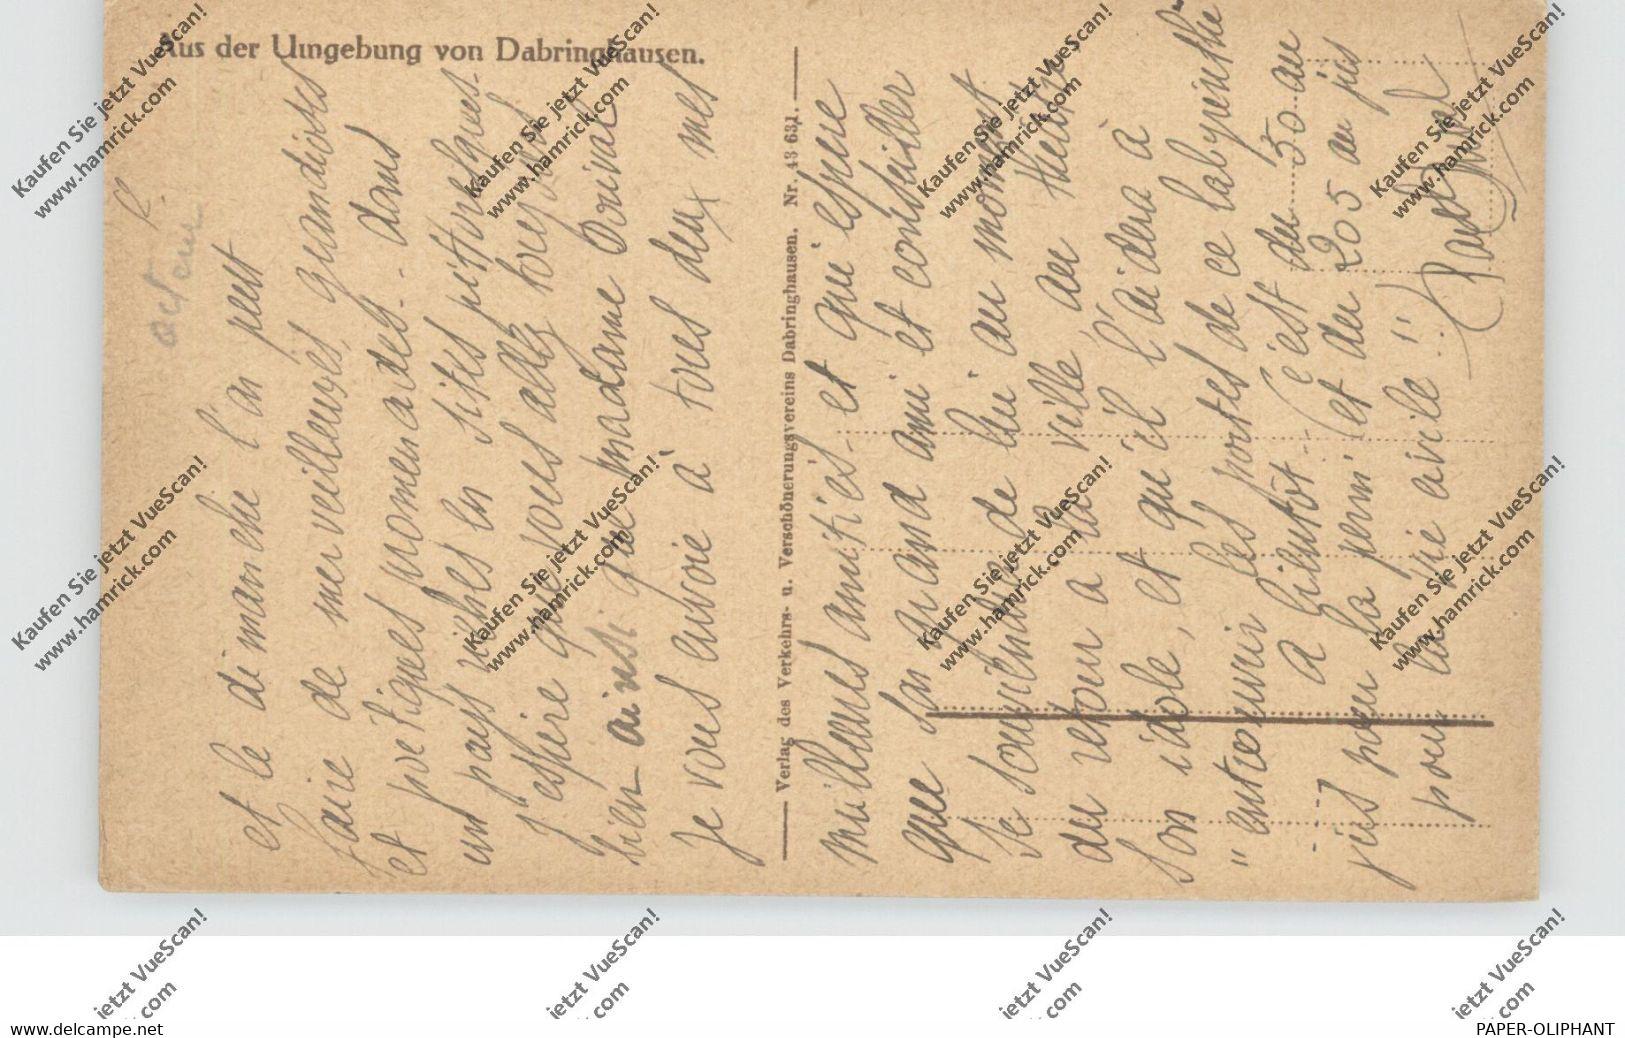 Aus der Umgebung von Dabringhausen.
acteur
et le dimanche l'on peut
faire de merveilleuses, grandioses
et poétiques promenades - dans
un pays riches en sites pittoresques.
J'espère que vous allez toujours
bien ainsi que madame
Je vous envoie à tous deux mes
Verlag des Verkehrs- u. Verschönerungsvereins Dabringhausen. Nr. 43 631.
meilleures amitiés - et qui espère
que son grand ami et conseiller
Se souviendra de lui au moment
du retour à la ville au théâtre
son idole, et qu'il l'aidera à
"entrouvrir les portes de ce labyrinthe
A bientôt - (c'est du 50 au
jus pour la perm' (et du 205 au jus
pour la vie civile"!)
Kaufen Sie jetzt VueScan!
www.hamrick.com
Kaufen Sie jetzt VueScan!
www.hamrick.com
Kaufen Sie jetzt VueScan!
www.hamrick.com
Kaufen Sie jetzt VueScan!
www.hamrick.com
Kaufen Sie jetzt VueScan!
www.hamrick.com
Kaufen Sie jetzt VueScan!
www.hamrick.com
Kaufen Sie jetzt VueScan!
www.hamrick.com
Kaufen Sie jetzt VueScan!
www.hamrick.com
jetzt VueScan!
.com
jetzt VueScan!
.com
jetzt VueScan!
.com
jetzt VueScan!
.com
www.delcampe.net
PAPER-OLIPHANT